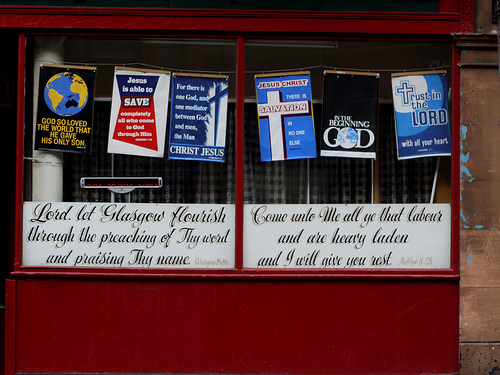 GOD SO LOVED
THE WORLD THAT
HE GAVE
HIS ONLY SON.
Jesus
is able to
SAVE
completely
all who come
to God
through Him
For there is
one God, and
one mediator
between God
and men,
the Man
CHRIST JESUS
JESUS CHRIST
THERE IS
SALVATION
IN
NO ONE
ELSE
IN THE
BEGINNING
GOD
Trust in
the
LORD
with all your heart
Lord, let Glasgow flourish
through the preaching of Thy word
and praising Thy name. Glasgow Motto
Come unto Me all ye that labour
and are heavy laden
and I will give you rest. Matthew 11-28.